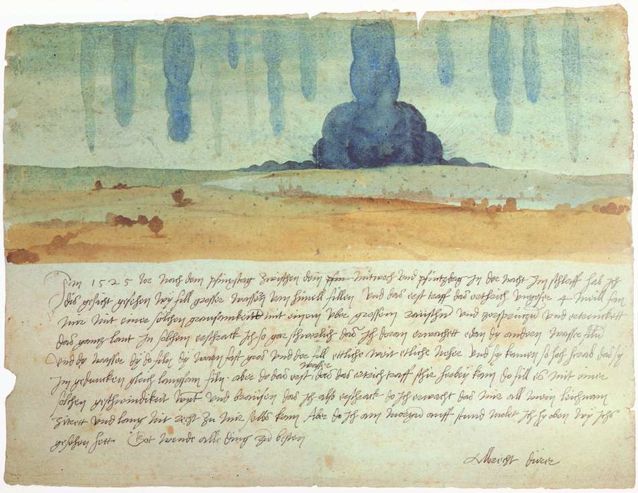 Im 1525 Jor nach dem pfinxtag zwischen dem mitwoch und pfintzdag in der nacht im schlaff hab ich
dis gesicht gesehen wy fill grosser wassern vom himell fillen und das erst traff das erthrich ungefer 4 meill fan
mir mit einer solchen grausamkeitt mit einem uber grossem raüschn und zersprützn und ertrenckett
das gantz lant In solchem erschrack ich so gar schwerlich das ich doran erwachett edan dy andern wasser filn
und dy wasser dy do filn dy warn fast gros und der fill ettliche weit etliche neher und sy kamen so hoch herab das sy
im gedancken gleich langsam filn aber do das erst wasser das das ertrich traff schir herbey kam do fill es mit einer
solchen geschwindikeit wynt und braüsen das ich also erschrack do ich erwacht das mir all mein leichnam
zitrett und lang nit recht zu mir selbs kam Aber do ich am morgen auff stund molet ich hy oben wy ichs
gesehen hett Got wende alle ding zu besten
Albrecht dürer